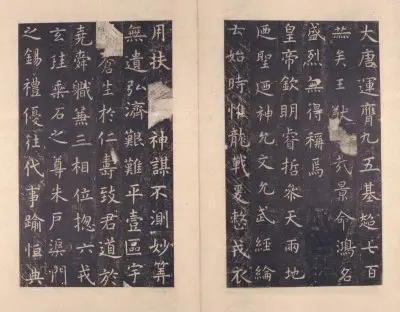 大唐運膺九五基超七百
矣王猷景命鴻名
盛烈無得稱焉
皇帝欽明睿哲叅天兩地
迺聖迺神允文允武經綸
云始時惟龍戰爰整戎衣
用扶神謀不測妙筭
無遺弘濟艱難平壹區宇
蒼生於仁壽致君道於
堯舜職兼三相位揔六戎
玄珪乘石之尊朱戶渠門
之錫禮優往代事踰恒典